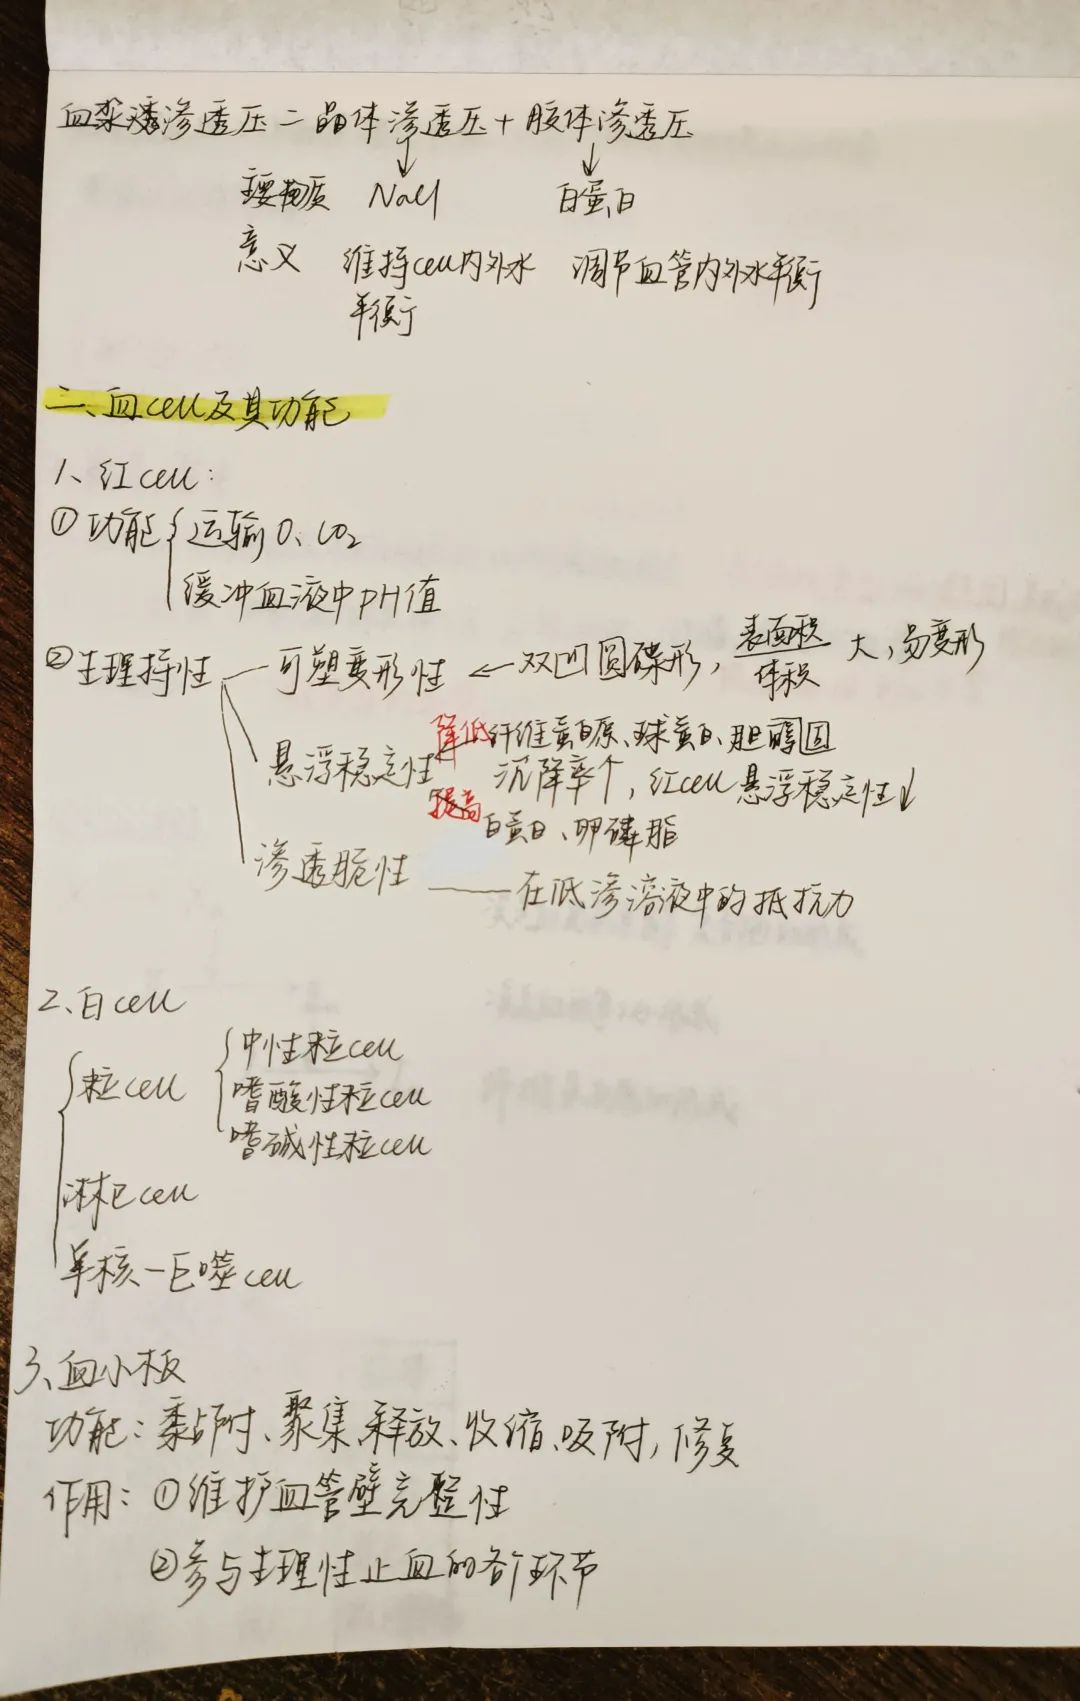 血浆渗透压=晶体渗透压+胶体渗透压
主要物质 NaCl 白蛋白
意义 维持cell内外水 调节血管内外水平衡
平衡
二、血cell及其功能
1、红cell:
①功能{运输O、CO₂
缓冲血液中PH值
②生理特性—可塑变形性←双凹圆碟形,表面积/体积 大,易变形
悬浮稳定性 降低 纤维蛋白原、球蛋白、胆醇固
沉降率个,红cell悬浮稳定性↓
提高 白蛋白、卵磷脂
渗透脆性 —— 在低渗溶液中的抵抗力
2、白cell
粒cell {中性粒cell
嗜酸性粒cell
嗜碱性粒cell
淋巴cell
单核—巨噬cell
3、血小板
功能:黏附、聚集、释放、收缩、吸附,修复
作用:①维护血管壁完整性
②参与生理性止血的各个环节